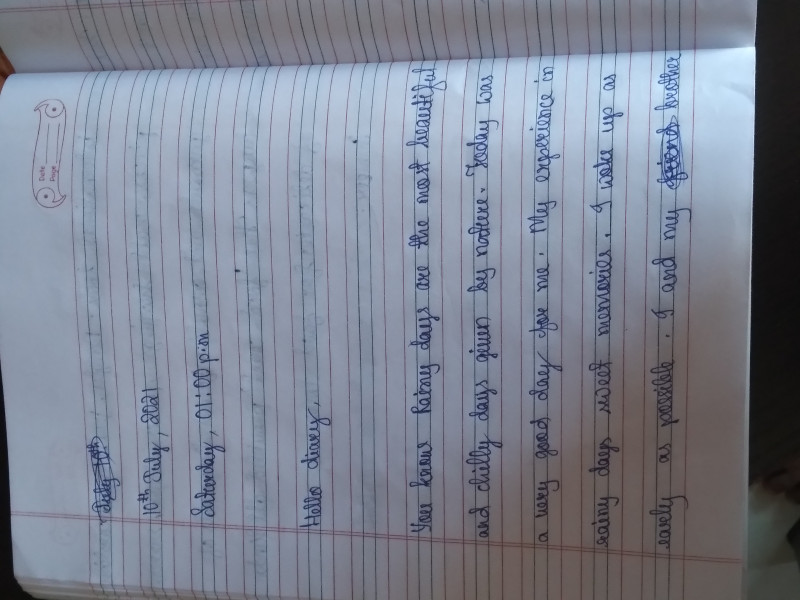 Date
Page
July 10th
10th July, 2021
Saturday, 01:00 p.m
Hello diary,
You know Rainy days are the most beautiful
and chilly days given by nature. Today was
a very good day for me. My experience in
rainy days sweet memories. I woke up as
early as possible. I and my friends brother